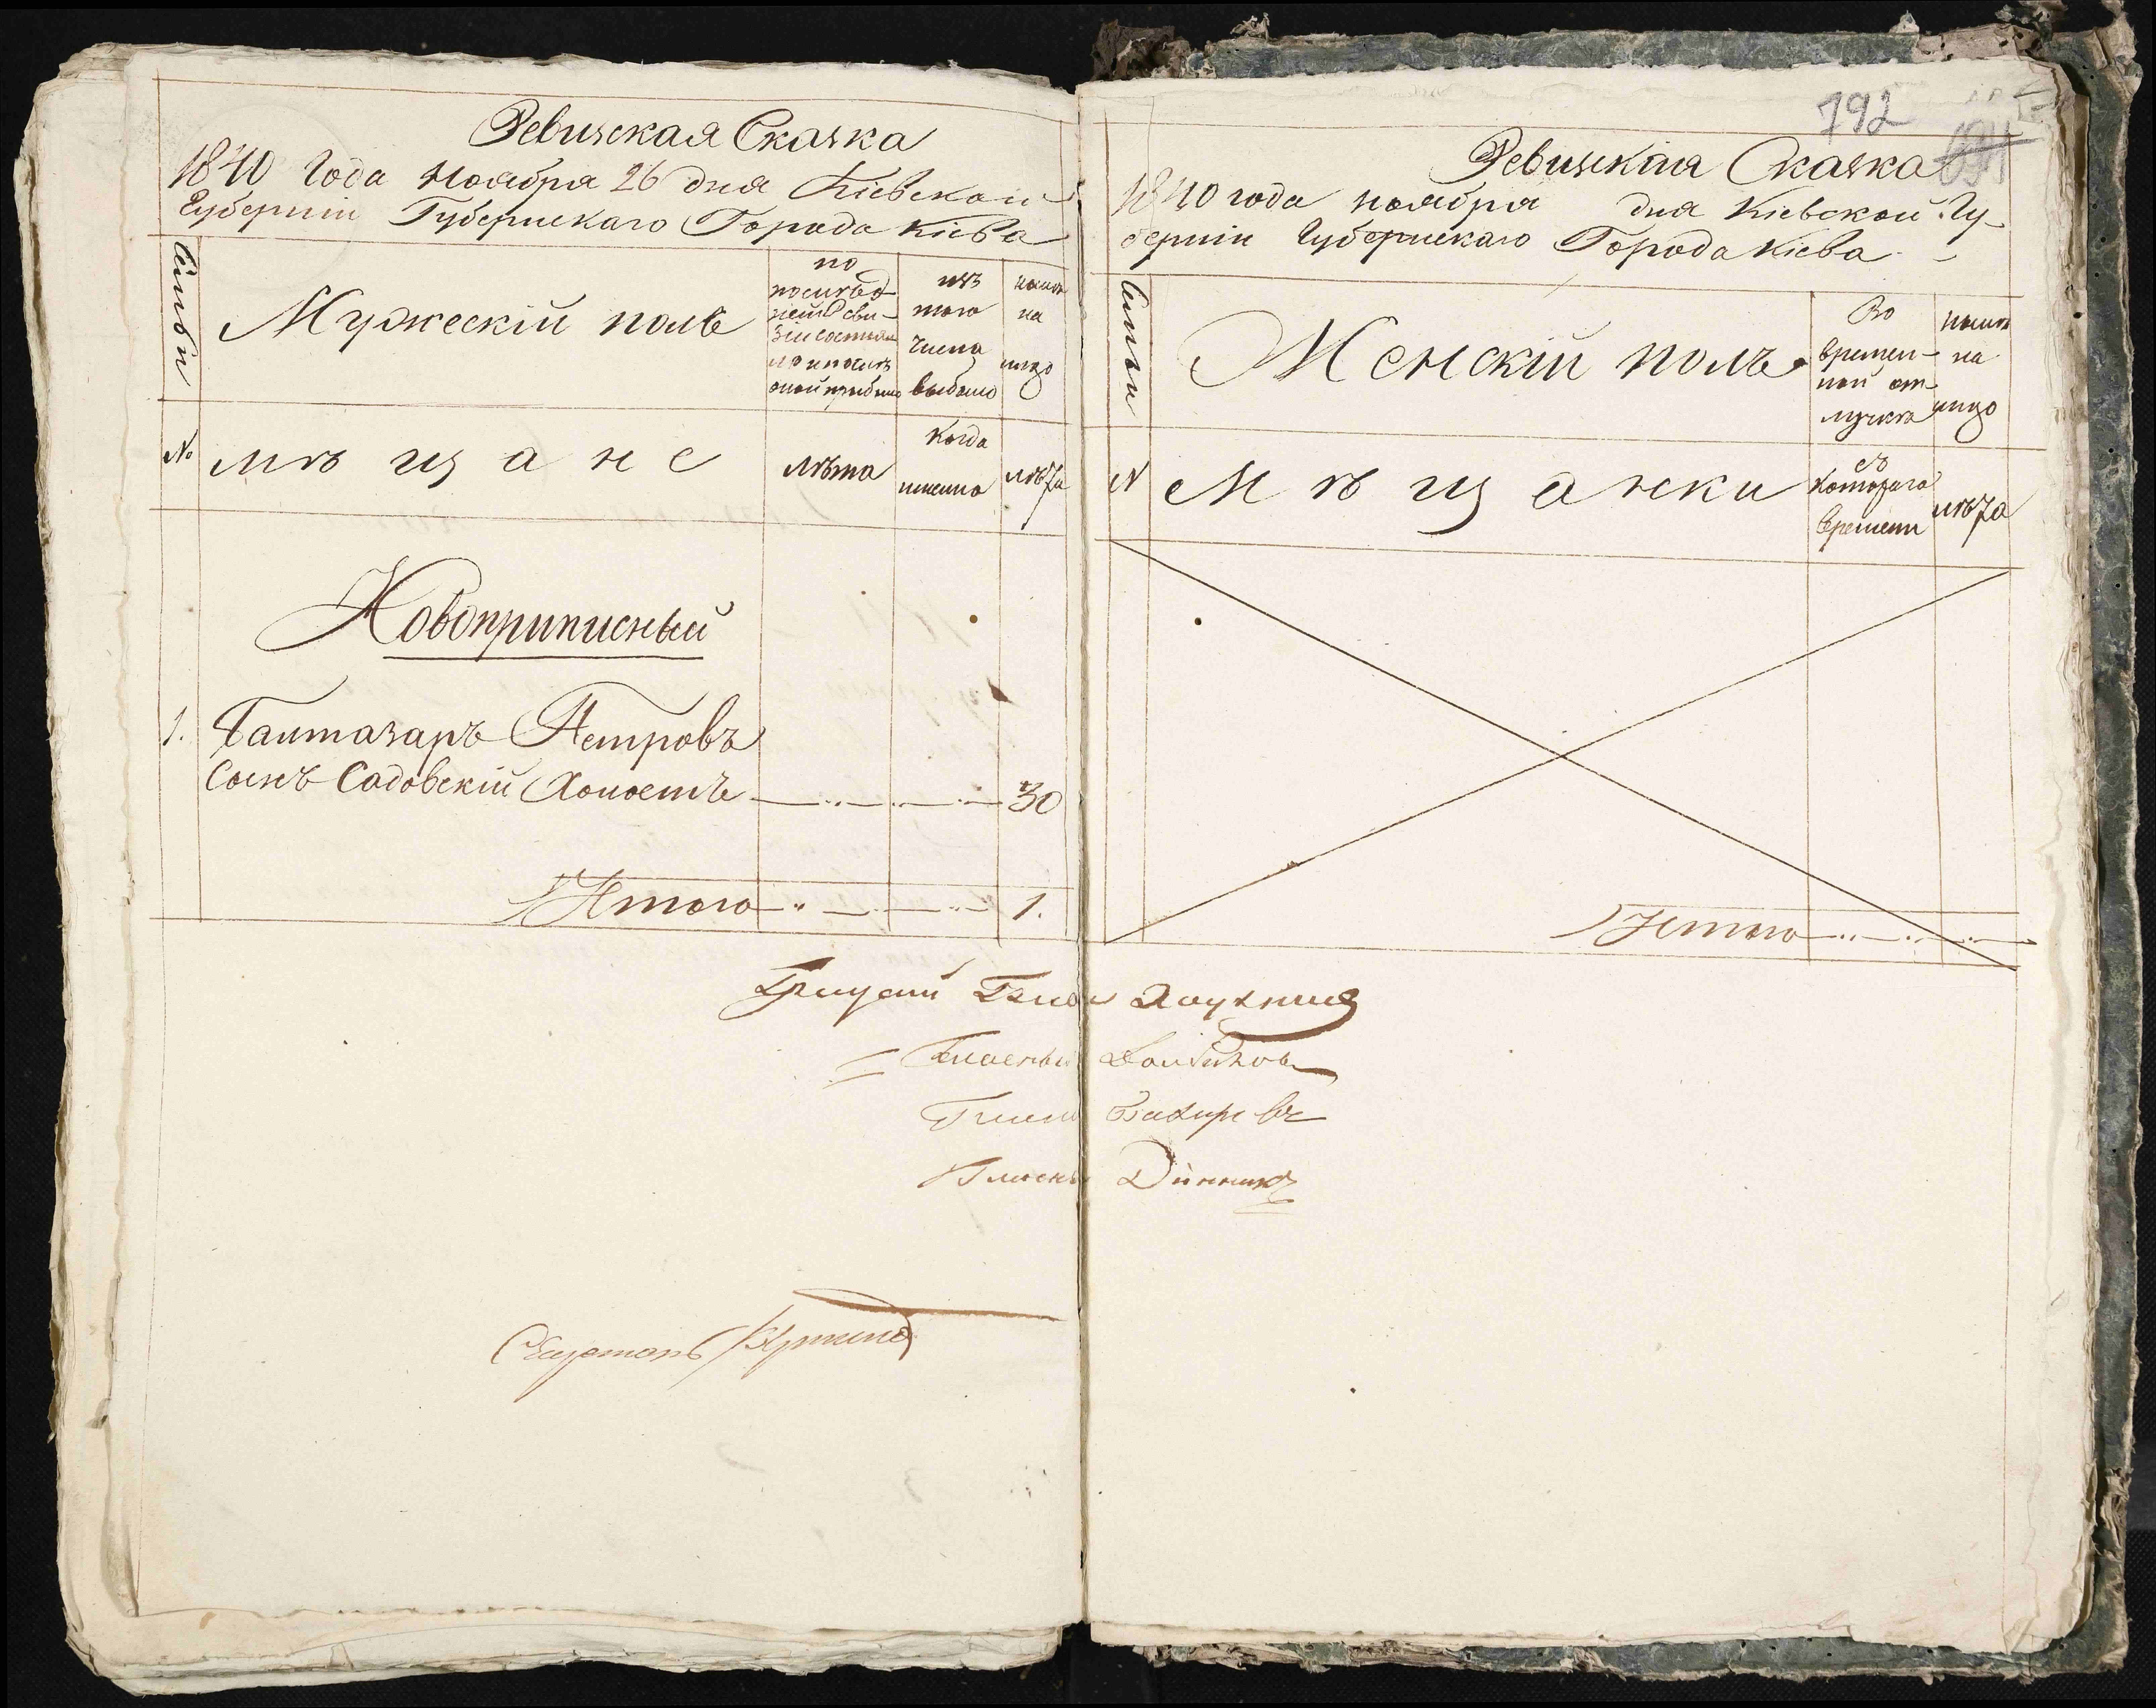 Ревизская Сказка
1840 Года Ноября 26 дня Кіевской
Губерніи Губернскаго Города Кіева
Семьи
Мужескій полъ
по
послѣд
ней Реви-
зіи состояло
и послѣ
оной прибыло
изъ
того
числа
выбыло
нынѣ
на
лицо
№
мѣщане
лѣта
Когда
именно
лѣта
Новоприписный
1. Балтазаръ Петровъ
Сынъ Садовскій Холостъ 30
Итого 1.
792
Ревизкая Сказка
1840 года ноября дня Кіевской Гу-
берніи Губернскаго Города Кіева
Семьи
Женскій полъ
Во
времен-
ной от-
лучкѣ
нынѣ
на
лицо
№
Мѣщанки
съ
Котораго
времени
лѣта
Итого
Гласный
Гласный
Гласный Динникъ